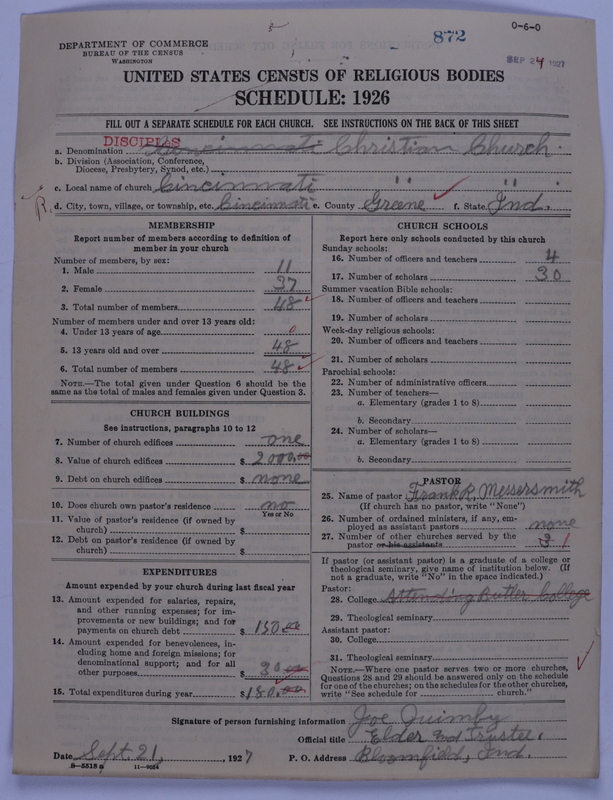 0-6-0
872
DEPARTMENT OF COMMERCE
BUREAU OF THE CENSUS
WASHINGTON
SEP 24 1927
UNITED STATES CENSUS OF RELIGIOUS BODIES
SCHEDULE: 1926
FILL OUT A SEPARATE SCHEDULE FOR EACH CHURCH. SEE INSTRUCTIONS ON THE BACK OF THIS SHEET
DISCIPLS
a. Denomination Cincinnati Christian Church
b. Division (Association, Conference,
Diocese, Presbytery, Synod, etc.)
c. Local name of church Cincinnati " "
R. d. City, town, village, or township, etc. Cincinnati e. County Greene f. State Ind.
MEMBERSHIP
Report number of members according to definition of
member in your church
Number of members, by sex:
1. Male 11
2. Female 37
3. Total number of members 48
Number of members under and over 13 years old:
4. Under 13 years of age 0
5. 13 years old and over 48
6. Total number of members 48
NOTE.—The total given under Question 6 should be the
same as the total of males and females given under Question 3.
CHURCH BUILDINGS
See instructions, paragraphs 10 to 12
7. Number of church edifices one
8. Value of church edifices $ 2000.00
9. Debt on church edifices $ none
10. Does church own pastor's residence no
Yes or No
11. Value of pastor's residence (if owned by
church) $
12. Debt on pastor's residence (if owned by
church) $
EXPENDITURES
Amount expended by your church during last fiscal year
13. Amount expended for salaries, repairs,
and other running expenses; for im-
provements or new buildings; and for
payments on church debt $ 150.00
14. Amount expended for benevolences, in-
cluding home and foreign missions; for
denominational support; and for all
other purposes $ 30.00
15. Total expenditures during year $ 180.00
CHURCH SCHOOLS
Report here only schools conducted by this church
Sunday schools:
16. Number of officers and teachers 4
17. Number of scholars 30
Summer vacation Bible schools:
18. Number of officers and teachers
19. Number of scholars
Week-day religious schools:
20. Number of officers and teachers
21. Number of scholars
Parochial schools:
22. Number of administrative officers
23. Number of teachers—
a. Elementary (grades 1 to 8)
b. Secondary
24. Number of scholars—
a. Elementary (grades 1 to 8)
b. Secondary
PASTOR
25. Name of pastor Frank R. Messersmith
(If church has no pastor, write "None")
26. Number of ordained ministers, if any, em-
ployed as assistant pastors none
27. Number of other churches served by the
pastor or his assistants 3 1
If pastor (or assistant pastor) is a graduate of a college or
theological seminary, give name of institution below. (If
not a graduate, write "No" in the space indicated.)
Pastor:
28. College Attending Butler College
29. Theological seminary
Assistant pastor:
30. College
31. Theological seminary
NOTE.—Where one pastor serves two or more churches,
Questions 28 and 29 should be answered only on the schedule
for one of the churches; on the schedules for the other churches,
write "See schedule for church."
Signature of person furnishing information Joe Quimby
Official title Elder and Trustee.
Date Sept. 21, 1927 P. O. Address Bloomfield, Ind.
8-5518a 11-9024